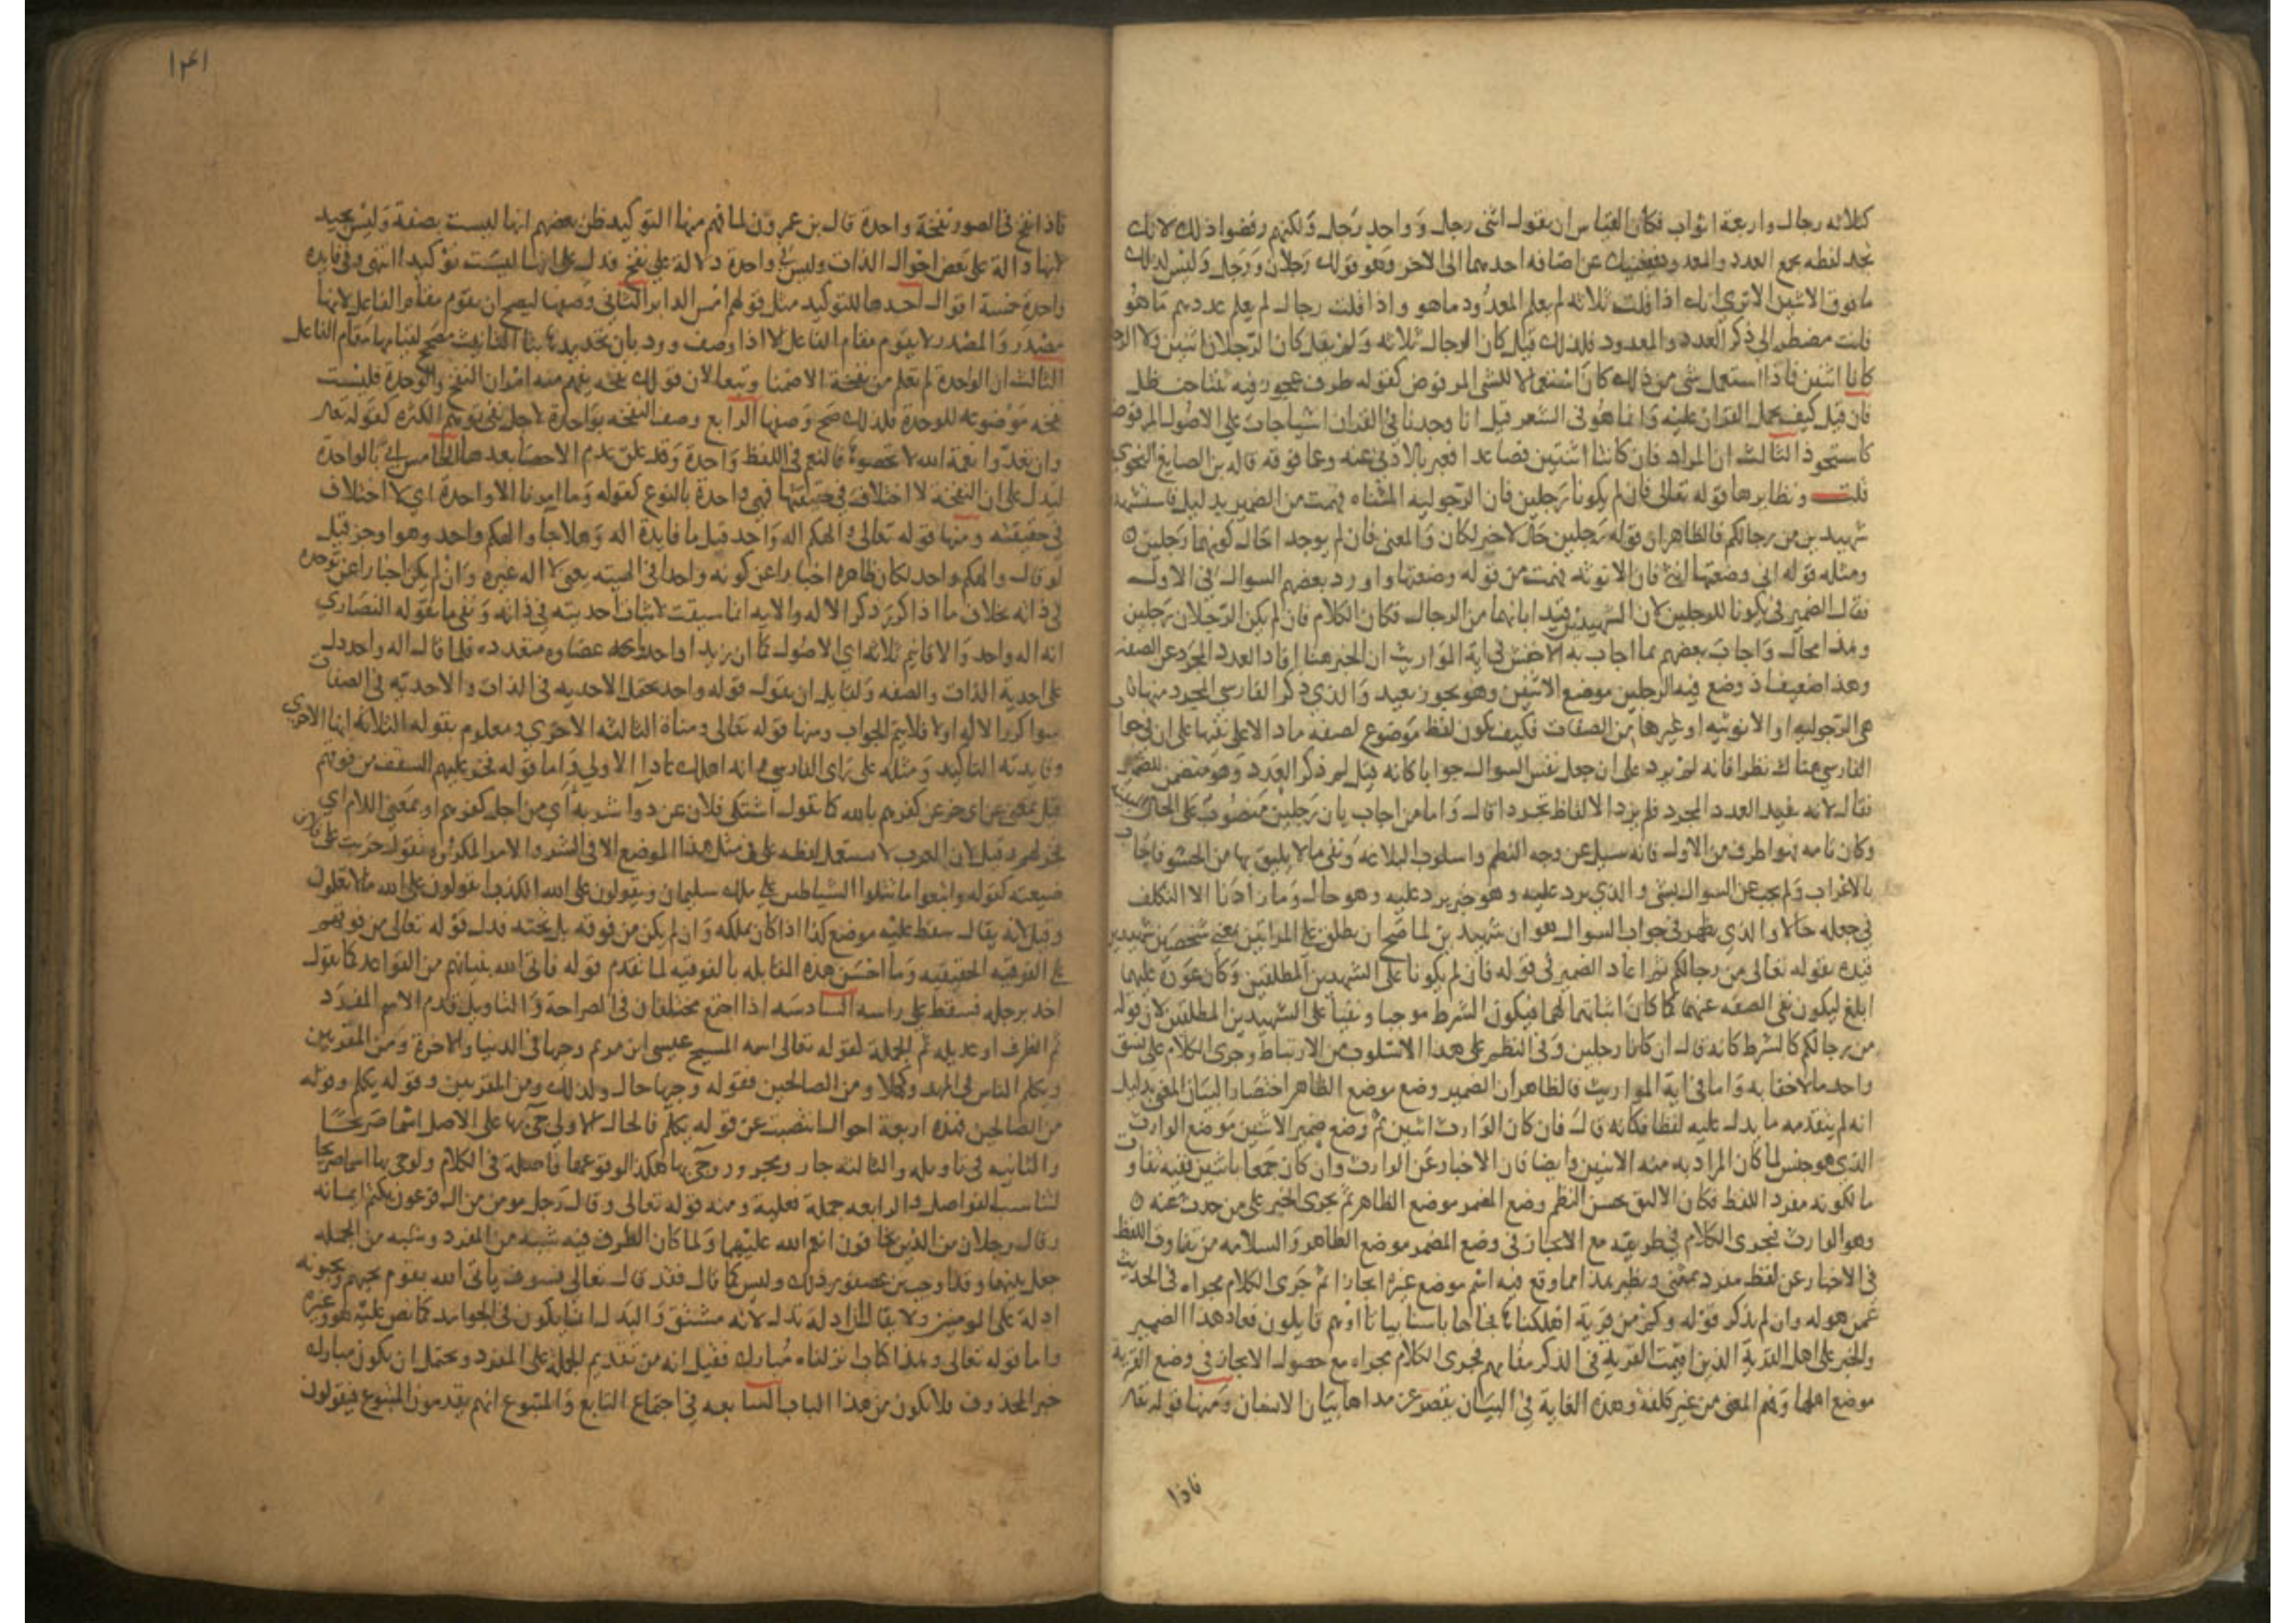 كثلاثه رجال واربعة اثواب فكان القياس ان يقول اثنى رجل وواحد رجل ولكنهم رفضوا ذلك لانك
تجد لفظه يجمع العدد والمعدود فيغنيك عن اضافه احدهما الى الاخر وهو قولك رجلان ورجل وليس كذلك
ما فوق الاثنين الا ترى انك اذا قلت ثلاثه لم يعلم المعدود ما هو واذا قلت رجال لم يعلم عددهم ما هو
فانت مضطر الى ذكر العدد والمعدود فلذلك قيل كان الرجال ثلاثه ولم يقل كان الرجلان اثنين ولا
كانا اثنين فاذا استعمل شى من ذلك كان استعمالا للشى المرفوض كقوله ظرف عجوز فيه ثنتا حنظل
فان قيل كيف يحمل القران عليه وانما هو فى الشعر قيل انا وجدنا فى القران اشيا جات على الاصول المرفوضه
كاستحوذ الثالث ان المراد فان كانتا اثنتين فصاعدا فعبر بالادنى عنه وعما فوقه قاله بن الصايغ النحوى
قلت ونظايرها قوله تعالى فان لم يكونا رجلين فان الرجوليه المثناه فهمت من الضمير بدليل فاستشهدوا
شهيدين من رجالكم فالظاهر ان قوله رجلين حال لا خبر لكان والمعنى فان لم يوجد احال كونهما رجلين
ومثله قوله انى وضعتها انثى فان الانوثه فهمت من قوله وضعتها واورد بعضهم السوال فى الاول
فقال الضمير فى يكونا للرجلين لان الشهيدين قيدا بانهما من الرجال فكان الكلام فان لم يكن الرجلان رجلين
وهذا محال واجاب بعضهم بما اجاب به الاخفش فى اية المواريث ان الخبر هنا افاد العدد المجرد عن الصفه
وهذا ضعيف اذ وضع فيه الرجلين موضع الاثنين وهو تجوز بعيد والذى ذكر الفارسى المجرد منهما
هى الرجوليه او الانوثيه او غيرها من الصفات فكيف يكون لفظ موضوع لصفه ما دالا على نفيها على ان فى جواب
الفارسى هناك نظرا فانه لم يزد على ان جعل نفس السوال جوابا كانه قيل لم ذكر العدد وهو متضمن للضمير
فقال لانه يفيد العدد المجرد فلم يزد الالفاظ تجردا قال واما من اجاب بان رجلين منصوب على الحال
وكان تامه فهو اظرف من الاول فانه سيل عن وجه النظم واسلوب البلاغه ونفى ما لا يليق بها من الحشو فاجاب
بالاعراب ولم يجب عن السوال بشى والذى يرد عليه وهو خبر يرد عليه وهو حال وما زادنا الا التكلف
فى جعله حالا والذى يظهر فى جواب السوال هو ان شهيدين لما صح ان يطلق على المراتين بمعنى شخصين شهيدين
قيده بقوله تعالى من رجالكم ثم اعاد الضمير فى قوله فان لم يكونا على الشهيدين المطلقين وكان عوده عليهما
ابلغ ليكون نفى الصفه عنهما كما كان اثباتهما لهما فيكون الشرط موجبا ونفيا على الشهيدين المطلقين لان قوله
من رجالكم كالشرط كانه قال ان كانا رجلين وفى النظم على هذا الاسلوب من الارتباط وجرى الكلام على نسق
واحد ما لا خفا به واما فى اية المواريث فالظاهر ان الضمير وضع موضع الظاهر اختصارا لبيان المعنى بدليل
انه لم يتقدمه ما يدل عليه لفظا فكانه قال فان كان الوارث اثنين ثم وضع ضمير الاثنين موضع الوارث
الذى هو جنس لما كان المراد به منه الاثنين وايضا فان الاخبار عن الوارث وان كان جمعا باثنين ففيه تفاوت
ما لكونه مفرد اللفظ فكان الاليق بحسن النظم وضع المضمر موضع الظاهر ثم يجرى الخبر على من حدث عنه
وهو الوارث فيجرى الكلام فى طريقه مع الايجاز فى وضع المضمر موضع الظاهر والسلامه من تفاوت اللفظ
فى الاخبار عن لفظ مفرد بمثنى ونظير هذا مما وقع فيه اسم موضع غيره ايجازا ثم جرى الكلام مجراه فى الحديث
عمن هو له وان لم يذكر قوله وكم من قرية اهلكناها فجاها باسنا بياتا او هم قايلون فعاد هذا الضمير
والخبر على اهل القرية الذين اقيمت القرية فى الذكر مقامهم فجرى الكلام مجراه مع حصول الايجاز فى وضع القرية
موضع اهلها وفهم المعنى من غير كلفة وهذه الغاية فى البيان يقصر عن مداها بيان الانسان ومنها قوله تعالى
فاذا
١٤١
فاذا نفخ فى الصور نفخة واحدة قال بن عمرون لما فهم منها التوكيد ظن بعضهم انها ليست بصفة وليس بجيد
لانها دالة على بعض احوال الذات وليس فى واحدة دلالة على نفخ فدل على انها ليست توكيدا انتهى وفى فايدة
واحدة خمسة اقوال احدها للتوكيد مثل قولهم امس الدابر الثانى وصفها ليصح ان يقوم مقام الفاعل لانها
مصدر والمصدر لا يقوم مقام الفاعل الا اذا وصف ورد بان تحديدها بتا التانيث مصحح لقيامها مقام الفاعل
الثالث ان الوحدة لم تعلم من نفخة الا ضمنا وتبعا لان قولك نفخه يفهم منه امران النفخ والوحدة فليست
نفخه موضوعه للوحدة فلذلك صح وصفها الرابع وصف النفخه بواحدة لاجل نفى توهم الكثره كقوله تعالى
وان تعدوا نعمة الله لا تحصوها فالنعم فى اللفظ واحدة وقد علق عدم الاحصا بعدها الخامس اتى بالواحدة
ليدل على ان النفخه لا اختلاف فى حقيقتها فهى واحدة بالنوع كقوله وما امرنا الا واحدة اى لا اختلاف
فى حقيقته ومنها قوله تعالى والهكم اله واحد قيل ما فايدة اله وهلا جا والهكم واحد وهو اوجز قيل
لو قال والهكم واحد لكان ظاهره اخبارا عن كونه واحدا فى الهيته يعنى لا اله غيره وان لم يكن اخبارا عن توحده
فى ذاته بخلاف ما اذا كرر ذكر الاله والايه انما سيقت لاثبات احديته فى ذاته ونفى ما يقوله النصارى
انه اله واحد والاقانيم ثلاثه اى الاصول كما ان زيدا واحد واعضاوه متعدده فلما قال اله واحد دل
على احدية الذات والصفه ولقايل ان يقول قوله واحد يحتمل الاحديه فى الذات والاحديه فى الصفات
سوا كرر الاله او لا فلا يتم الجواب ومنها قوله تعالى ومناة الثالثه الاخرى ومعلوم بقوله الثالثه انها الاخرى
وفايدته التاكيد ومثله على راى الفارسى وانه اهلك عادا الاولى واما قوله فخر عليهم السقف من فوقهم
قيل بمعنى عن اى خر عن كفرهم بالله كما تقول اشتكى فلان عن دوا شربه اى من اجل كفرهم او بمعنى اللام اى
فخر لهم وقيل لان العرب لا تستعمل لفظه على فى مثل هذا الموضع الا فى الشر والامر المكروه تقول خربت على فلان
ضيعته كقوله واتبعوا ما تتلوا الشياطين على ملك سليمان ويقولون على الله الكذب اتقولون على الله مالا تعلمون
وقيل لانه يقال سقط عليه موضع كذا اذا كان يملكه وان لم يكن من فوقه بل تحته فدل قوله تعالى من فوقهم
على الفوقيه الحقيقيه وما احسن هذه المقابله بالفوقيه لما تقدم قوله فاتى الله بنيانهم من القواعد كما تقول
اخذ برجله فسقط على راسه السادسه اذا اجتمع مختلفان فى الصراحة والتاويل قدم الاسم المفرد
ثم الظرف او عديله ثم الجملة كقوله تعالى اسمه المسيح عيسى ابن مريم وجيها فى الدنيا والاخرة ومن المقربين
ويكلم الناس فى المهد وكهلا ومن الصالحين فقوله وجيها حال وكذلك ومن المقربين وقوله يكلم وقوله
من الصالحين فهذه اربعة احوال انتصبت عن قوله بكلمة فالحال الاولى جى بها على الاصل اسما صريحا
والثانيه فى تاويله والثالثه جار ومجرور وجى بها هكذا لوقوعها فاصلة فى الكلام ولو جى بها اسما صريحا
لناسب الفواصل والرابعه جملة فعلية ومنه قوله تعالى وقال رجل مومن من ال فرعون يكتم ايمانه
وقال رجلان من الذين يخافون انعم الله عليهما ولما كان الظرف فيه شبه من المفرد وشبه من الجمله
جعل بينهما وقد اوجب بن عصفور ذلك وليس كما قال فقد قال تعالى فسوف ياتى الله بقوم يحبهم ويحبونه
اذلة على المومنين ولا يقال اذلة بدل لانه مشتق والبدل انما يكون فى الجوامد كما نص عليه هو وغيره
واما قوله تعالى وهذا كتاب انزلناه مبارك فقيل انه من تقديم الجملة على المفرد ويحتمل ان يكون مبارك
خبر المحذوف فلا يكون من هذا الباب السابعه فى اجتماع التابع والمتبوع انهم يقدمون المتبوع فيقولون